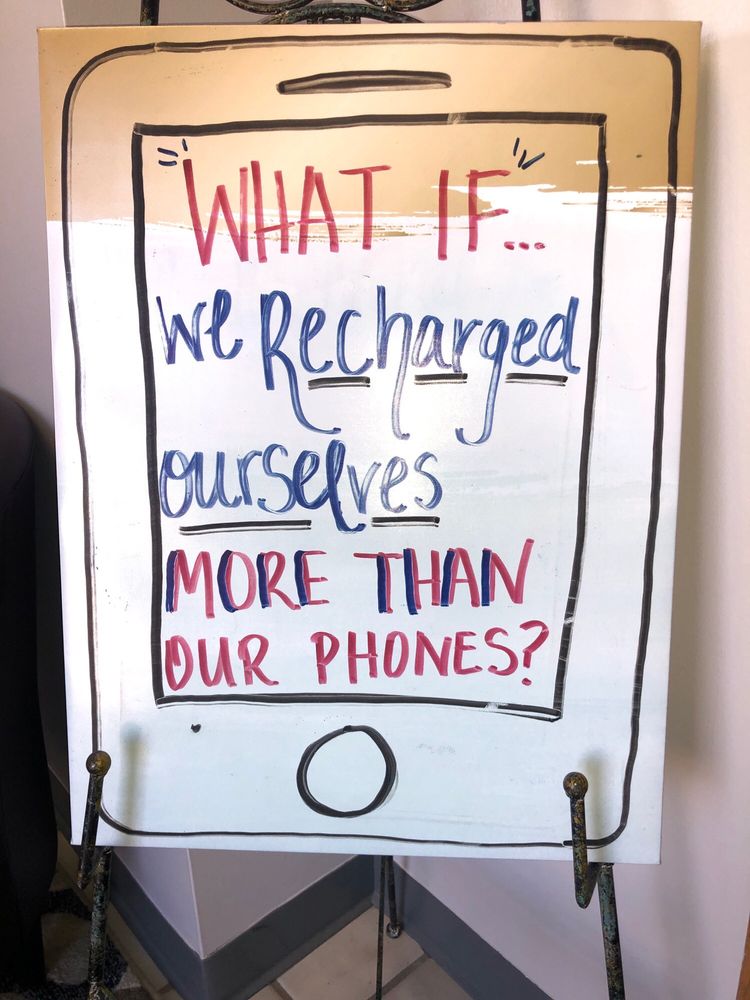 WHAT IF...
We Recharged
ourselves
MORE THAN
OUR PHONES?